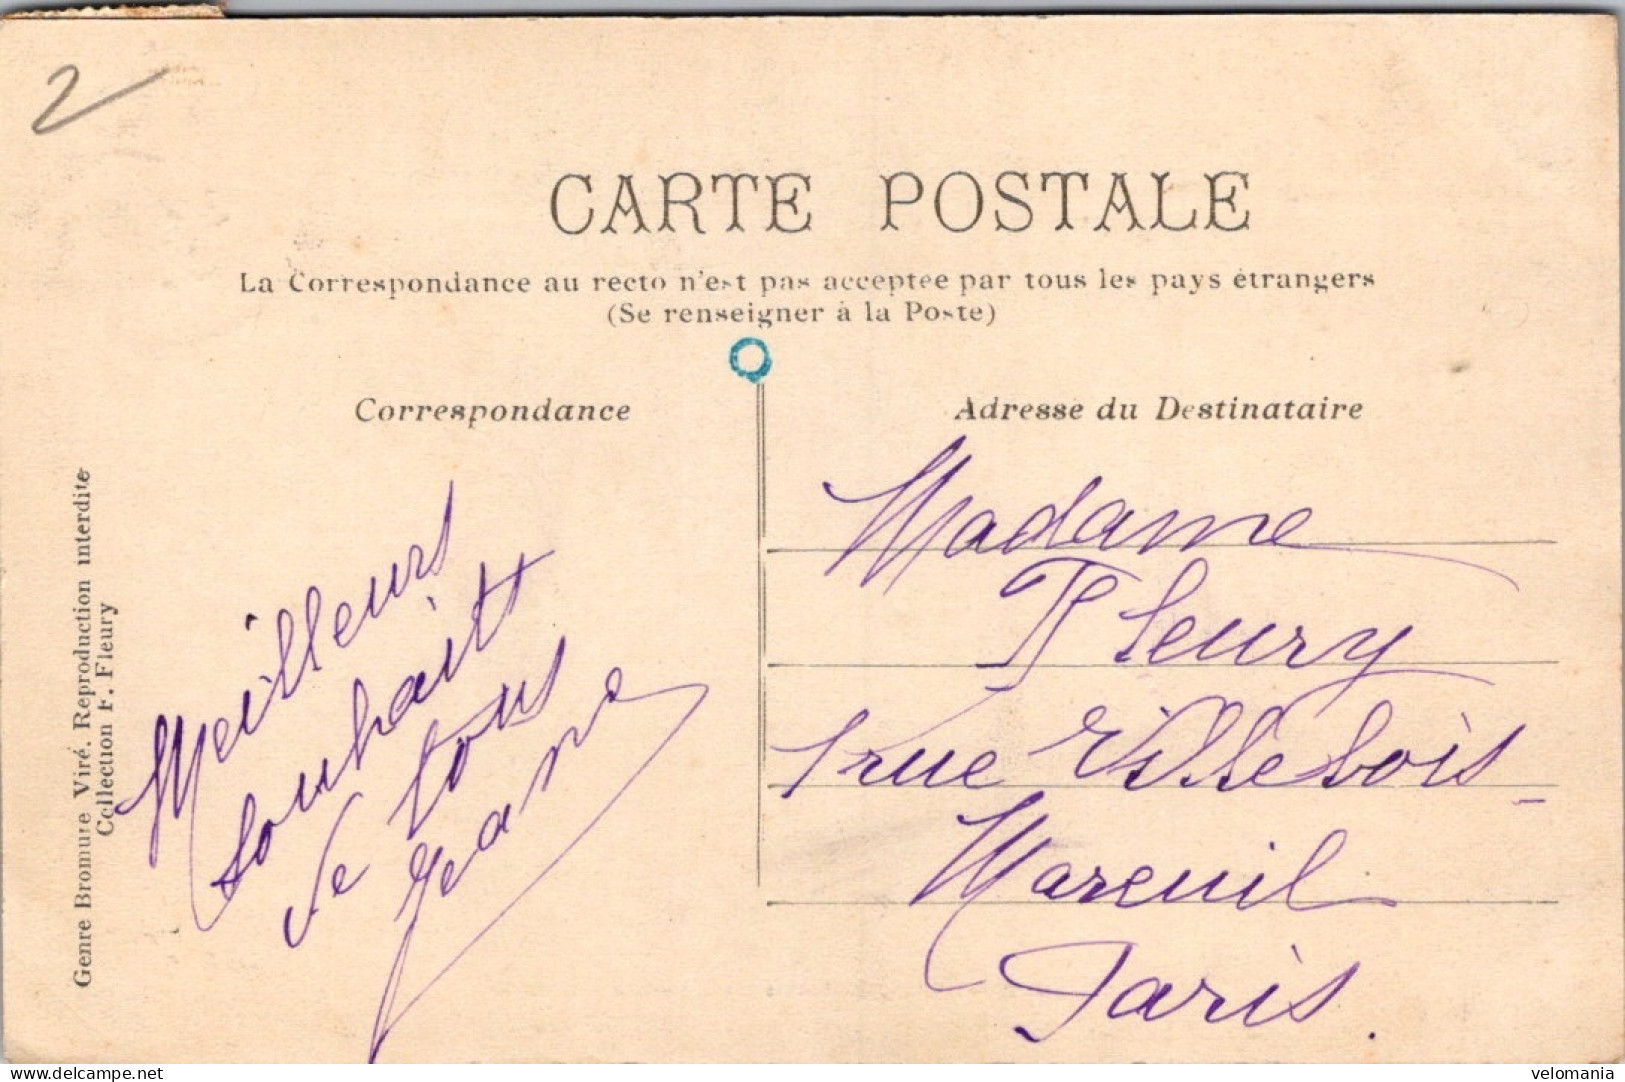 2
CARTE POSTALE
La Correspondance au recto n'est pas acceptée par tous les pays étrangers
(Se renseigner à la Poste)
Correspondance
Adresse du Destinataire
Genre Bromure Viré. Reproduction interdite
Collection F. Fleury
Meilleurs
souhaits
de tous
Jeanne
Madame
Fleury
rue Villebois-
Mareuil
Paris.
delcampe.net
velomania